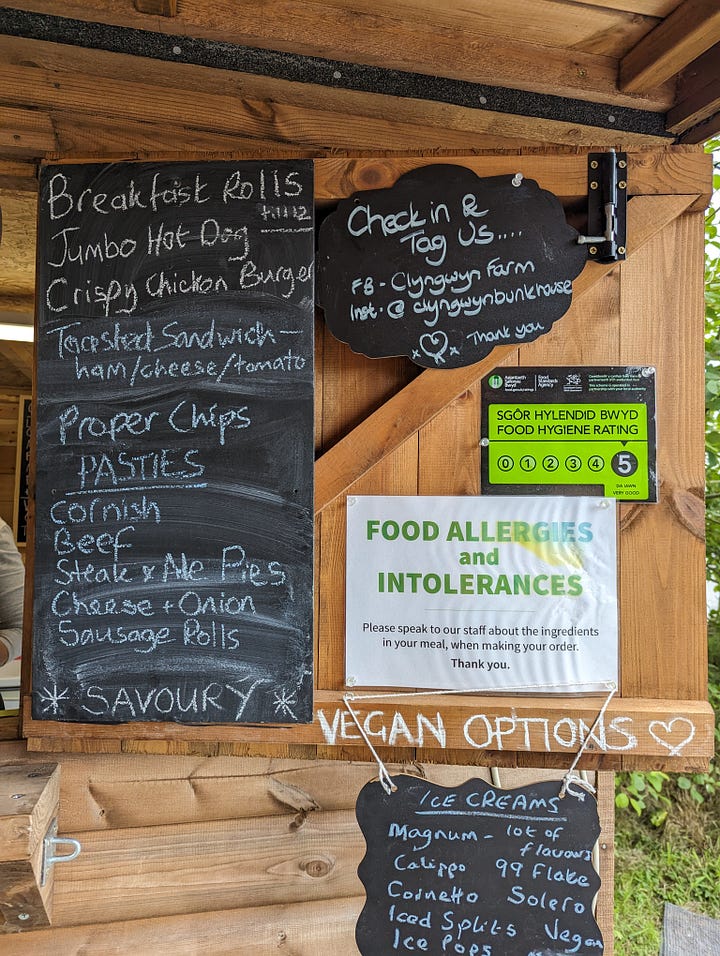 Breakfast Rolls
till 12
Jumbo Hot Dog
Crispy Chicken Burger
Toasted Sandwich -
ham/cheese/tomato
Proper Chips
PASTIES
Cornish
Beef
Steak & Ale Pies
Cheese + Onion
Sausage Rolls
* SAVOURY *
Check in &
Tag Us....
FB - Clyngwyn Farm
Inst. @ clyngwynbunkhouse
x ♡ x Thank you
Asiantaeth
Safonau
Bwyd
Food
Standards
Agency
SGÔR HYLENDID BWYD
FOOD HYGIENE RATING
0 1 2 3 4 5
DA IAWN
VERY GOOD
FOOD ALLERGIES
and
INTOLERANCES
Please speak to our staff about the ingredients
in your meal, when making your order.
Thank you.
VEGAN OPTIONS ♡
ICE CREAMS
Magnum - lot of
flavours
Calippo 99 Flake
Cornetto Solero
Iced Splits Vegan
Ice Pops